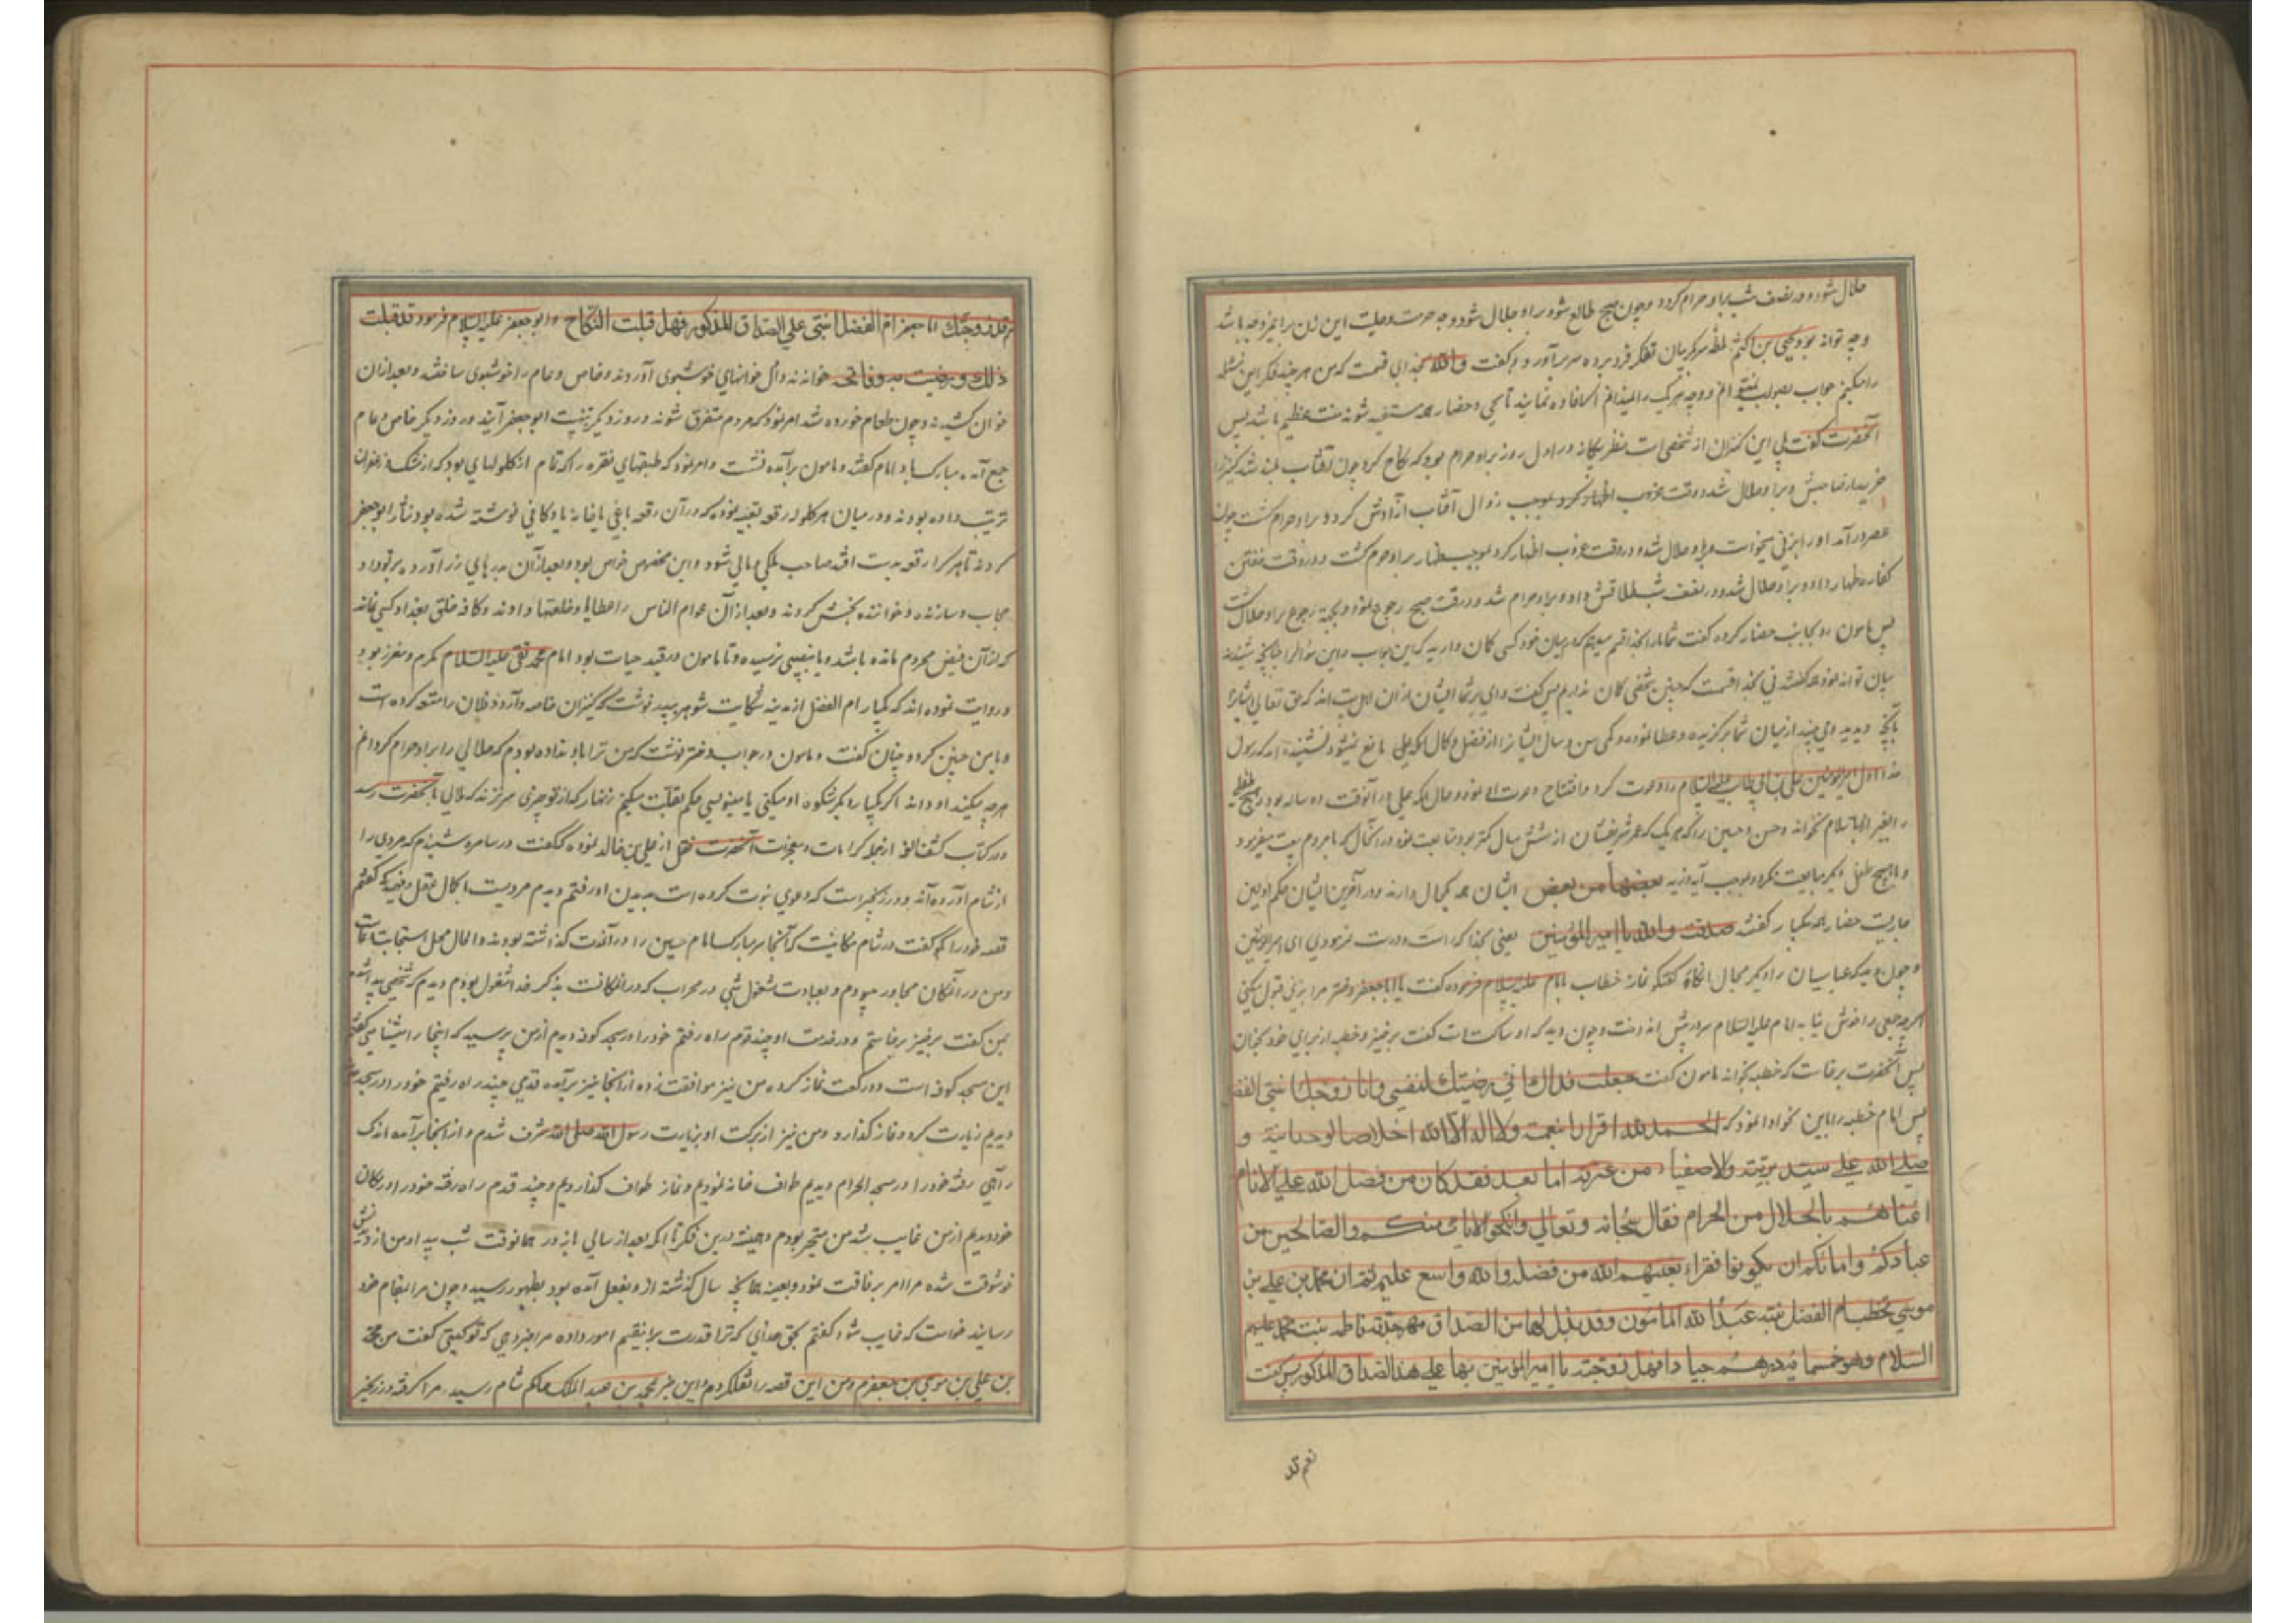 حلال شود و در نصف شب براو حرام کردد و چون صبح طالع شود براو حلال شود وجه حرمت و حلیت این زن را بغیر وجه باشد
وجه تواند بود یحیی بن اکثم لحظه سر کریبان تفکر فرو برده سر برآورد و کفت والله بخدای قسمت که من هر چند فکر این مسئله
را میکنم جواب بصواب نمیتوانم و وجه هر یک را نمیدانم اکر افاده نمایند تا یحیی و حضار همه مستفید شوند منت عظیم باشد پس
آنحضرت کفت بلی این کنیزان از شخصی است بنظر بیکانه در اول روز براو حرام بود که نکاح کرد چون آفتاب بلند شد کنیز را
خرید از صاحبش و براو حلال شد و وقت زوال آفتاب آزادش کرد و براو حرام کشت چون
عصر در آمد اورا بزنی بخواست و براو حلال شد و در وقت غروب اظهار کرد بموجب ظهار براو حرام کشت و در وقت خفتن
کفاره ظهار داد و براو حلال شد و در نصف شب طلاقش داد و براو حرام شد و در وقت صبح رجوع نمود و بجهة رجوع براو حلال کشت
پس مامون رو بجانب حضار کرده کفت شما را بخدا قسم میدهم که در میان خود کسی کمان دارید که این جواب و این سؤال را چنانچه شنیدند
بیان تواند نمود همه کفتند نی بخدا قسمت که چنین شخصی کمان نداریم پس کفت وای بر شما ایشان از ان اهل بیت اند که حق تعالی ایشانرا
بآنچه دیدید و می بینید از میان شما برکزیده و عطا نموده و کمی سن و سال ایشانرا از فضل و کمال مانع نمیشود نشنیده اید که رسول
خدا اول امیرالمؤمنین علی بن ابی طالب علیه السلام را دعوت کرد و افتتاح دعوت باو نمود و حال آنکه علی در آنوقت ده ساله بود و هیچ طفلی
را بغیر او باسلام نخواند و حسن و حسین را که هر یک که عمر شریفشان از شش سال کمتر بود متابعت نمود در آنحال که با مردم بیعت میفرمود
و با هیچ طفل دیکر مبایعت نکرد و بموجب آیه ذریه بعضها من بعض ایشان همه کمال دارند و در آخرین ایشان حکم اولین
جاریست حضار همه یکبار کفتند صدقت والله یا امیر المؤمنین یعنی بخدا که راست و درست فرمودی ای امیرالمؤمنین
و چون دید که عباسیان را دیکر مجال انکار و کفتکو نماند خطاب بامام علیه السلام فرموده کفت یا ابا جعفر دختر مرا بزنی قبول میکنی
اکر چه جمعی را خوش نیاید امام علیه السلام سر در پیش انداخت و چون دید که او ساکت است کفت برخیز و خطبه از برای خود بخوان
پس آنحضرت برخاست که خطبه بخواند مامون کفت جعلت فداك انی رضیتك لنفسی وانا زوجك ابنتی الفضل
پس امام خطبه را باین نحو ادا نمود که الحمد لله اقرارا بنعمته ولا اله الا الله اخلاصا لوحدانیته و
صلی الله علی سید بریته والاصفیاء من عترته اما بعد فقد کان من فضل الله علی الانام
اغناهم بالحلال من الحرام فقال سبحانه وتعالی وانکحوا الایامی منکم والصالحین من
عبادکم وامائکم ان یکونوا فقراء یغنیهم الله من فضله والله واسع علیم ثم ان محمد بن علی بن
موسی یخطب ام الفضل بنته عبد الله المامون وقد بذل لها من الصداق مهر جدته فاطمه بنت محمد علیهم
السلام وهو خمسمائه درهم جیادا فهل زوجته یا امیر المؤمنین بها علی هذا الصداق المذکور پس کفت
نعم قد
نعم قد زوجتك ابا جعفر ام الفضل ابنتی علی الصداق المذکور فهل قبلت النکاح وابو جعفر علیه السلام فرمود قد قبلت
ذلك ورضیت به وفاتحه خواندند و آن خوانهای خوشبوی آوردند و خاص و عام را خوشبوی ساختند و بعد ازان
خوان کشیدند و چون طعام خورده شد امر نمود که مردم متفرق شوند و روز دیکر بتهنیت ابو جعفر آیند و روز دیکر خاص و عام
جمع آمده مبارکباد امام کفتند و مامون برآمده نشست و امر نمود که طبقهای نقره را که تمام از کلولهای بود که از مشک و زعفران
ترتیب داده بودند و در میان هر کلوله رقعه تعبیه نموده که در آن رقعه باغی یا خانه یا دکانی نوشته شده بود نثار ابو جعفر
کردند تا هر کرا رقعه بدست افتد صاحب ملکی و مالی شود و این مخصوص خواص بود و بعد ازآن بدرهای زر آورده بر قواد و
حجاب و سازنده و خواننده بخش کردند و بعد ازآن عوام الناس را عطاها و خلعتها دادند و کافه خلق بغداد کسی نماند
که از آن فیض محروم مانده باشد و یا نصیبی نرسیده و تا مامون در قید حیات بود امام محمد تقی علیه السلام مکرم و معزز بود
و روایت نموده اند که یکبار ام الفضل از مدینه شکایت شوهر بپدر نوشت که کنیزان خاصه دارد و فلان را متعه کرده است
و با من چنین کرد و چنان کفت و مامون در جواب دختر نوشت که من ترا باو نداده بودم که حلالی را براو حرام کردانم
هر چه میکند او داند اکر یکبار دیکر شکوه او میکنی یا مینویسی حکم بقتلت میکنم زنهار که از تو چیزی سر نزند که ملالی بآنحضرت رسد
و در کتاب کشف الغمه از جمله کرامات و معجزات آنحضرت نقل از علی بن خالد نموده که کفت در سامره شنیدم که مردی را
از شام آورده اند و در زنجیر است که دعوی نبوت کرده است بدیدن او رفتم دیدم مردیست با کمال عقل و فهم کفتم
قصه خود را بکو کفت در شام مکانیست که آنجا سر مبارک امام حسین را در آنوقت کذاشته بودند و الحال محل استجابت دعاست
و من در آنمکان مجاور میبودم و بعبادت مشغول شبی در محراب که در آنمکانست بذکر خدا مشغول بودم دیدم که شخصی پیدا شد
بمن کفت برخیز برخاستم و در خدمت او چند قدم راه رفتم خود را در مسجد کوفه دیدم از من پرسید که اینجا را میشناسی کفتم
این مسجد کوفه است دو رکعت نماز کرده من نیز موافقت نموده از آنجا نیز برآمده قدمی چند راه رفتیم خود را در مسجد
دیدیم زیارت کرد و نماز کذارد و من نیز از برکت او بزیارت رسول الله صلی الله مشرف شدم و از آنجا برآمده اندک
راهی رفته خود را در مسجد الحرام دیدیم طواف خانه نمودیم و نماز طواف کذاردیم و چند قدم راه رفته خود را در مکان
خود دیدیم از من غایب شد من متحیر بودم و همیشه درین فکر تا آنکه بعد از سالی باز در همانوقت شب پیدا و من از دیدنش
خوشوقت شده مرا امر برفاقت نمود و بعینه همانچه سال کذشته ازو بفعل آمده بود بظهور رسید و چون مرا بمقام خود
رسانید خواست که غایب شود کفتم بحق خدای که ترا قدرت برانقسم امور داده مرا خبر دهی که تو کیستی کفت من محمد
بن علی بن موسی بن جعفرم و من این قصه را نقل کردم و این خبر بمحمد بن عبد الملک حاکم شام رسید مرا کرفته در زنجیر